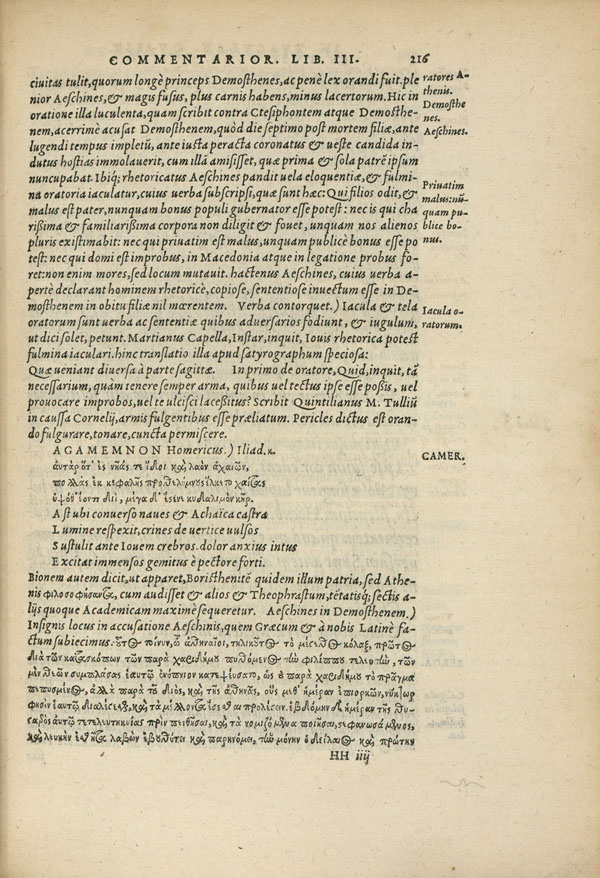 COMMENTARIOR. LIB. III. 216
ciuitas tulit, quorum longè princeps Demosthenes, ac penè lex orandi fuit. ple
nior Aeschines, & magis fusus, plus carnis habens, minus lacertorum. Hic in
oratione illa luculenta, quam scribit contra Ctesiphontem atque Demosthe-
nem, acerrimè accusat Demosthenem, quòd die septimo post mortem filiæ, ante
lugendi tempus impletũ, ante iusta peracta coronatus & ueste candida in-
dutus hostias immolauerit, cum illā amisisset, quæ prima & sola patrẽ ipsum
nuncupabat. Ibiq; rhetoricatus Aeschines pandit uela eloquentiæ, & fulmi-
na oratoria iaculatur, cuius uerba subscripsi, quæ sunt hæc: Qui filios odit, &
malus est pater, nunquam bonus populi gubernator esse potest: nec is qui cha
rißima & familiarißima corpora non diligit & fouet, unquam nos alienos
pluris existimabit: nec qui priuatim est malus, unquam publicè bonus esse po
test: nec qui domi est improbus, in Macedonia atque in legatione probus fo-
ret: non enim mores, sed locum mutauit. hactenus Aeschines, cuius uerba a-
pertè declarant hominem rhetoricè, copiose, sententiose inuectum esse in De-
mosthenem in obitu filiæ nil mœrentem. Verba contorquet.) Iacula & tela
oratorum sunt uerba ac sententiæ quibus aduersarios fodiunt, & iugulum,
ut dici solet, petunt. Martianus Capella, Instar, inquit, Iouis rhetorica potest
fulmina iaculari. hinc translatio illa apud satyrographum speciosa:
Quæ ueniant diuersa à parte sagittæ. In primo de oratore, Quid, inquit, tā
necessarium, quàm tenere semper arma, quibus uel tectus ipse esse poßis, uel
prouocare improbos, uel te ulcisci laceßitus? Scribit Quintilianus M. Tulliũ
in caussa Cornelij, armis fulgentibus esse præliatum. Pericles dictus est oran-
do fulgurare, tonare, cuncta permiscere.
AGAMEMNON Homericus.) Iliad. κ.
αὐτὰρ ὅτ᾽ ἐς νῆάς τε ἴδοι καὶ λαὸν ἀχαιῶν,
πολλὰς ἐκ κεφαλῆς προθελύμνους ἕλκετο χαίτας
ὑψόθ᾽ ἐόντι διῒ, μέγα δ᾽ ἔστενε κυδάλιμον κῆρ.
Ast ubi conuerso naues & Achaïca castra
Lumine respexit, crines de uertice uulsos
Sustulit ante Iouem crebros. dolor anxius intus
Excitat immensos gemitus è pectore forti.
Bionem autem dicit, ut apparet, Boristhenitẽ quidem illum patria, sed Athe
nis φιλοσοφήσαντα, cum audisset & alios & Theophrastum, tẽtatisq; sectis a-
lijs quoque Academicam maximè sequeretur. Aeschines in Demosthenem.)
Insignis locus in accusatione Aeschinis, quem Græcum & à nobis Latinè fa-
ctum subiecimus. οὗτος τοίνυν, ὦ ἀθηναῖοι, τηλικοῦτος τὸ μέγεθος κόλαξ, πρῶτος
διὰ τῶν κατασκόπων τῶν παρὰ χαριδήμου πυθόμενος τὴν φιλίππου τελευτὴν, τῶν
μὲν θεῶν συμπλάσας ἑαυτῷ ἐνύπνιον κατεψεύσατο, ὡς οὐ παρὰ χαριδήμου τὸ πρᾶγμα
πεπυσμένος, ἀλλὰ παρὰ τοῦ διὸς, καὶ τῆς ἀθηνᾶς, οὓς μεθ᾽ ἡμέραν ἐπιορκῶν, νύκτωρ
φησὶν ἑαυτῷ διαλέγεσθαι, καὶ τὰ μέλλοντα ἔσεσθαι προλέγειν. ἑβδόμην δ᾽ ἡμέραν τῆς θυ-
γατρὸς αὐτῷ τετελευτηκυίας πρὶν πενθῆσαι, καὶ τὰ νομιζόμενα ποιῆσαι, στεφανωσάμενος,
καὶ λευκὴν ἐσθῆτα λαβὼν ἐβουθύτει καὶ παρηνόμει, τὴν μόνην ὁ δείλαιος καὶ πρώτην
HH iiij
ratores A-
thenis.
Demosthe
nes.
Aeschines.
Priuatim
malus: nũ-
quam pu-
blice bo-
nus.
Iacula o-
ratorum.
CAMER.